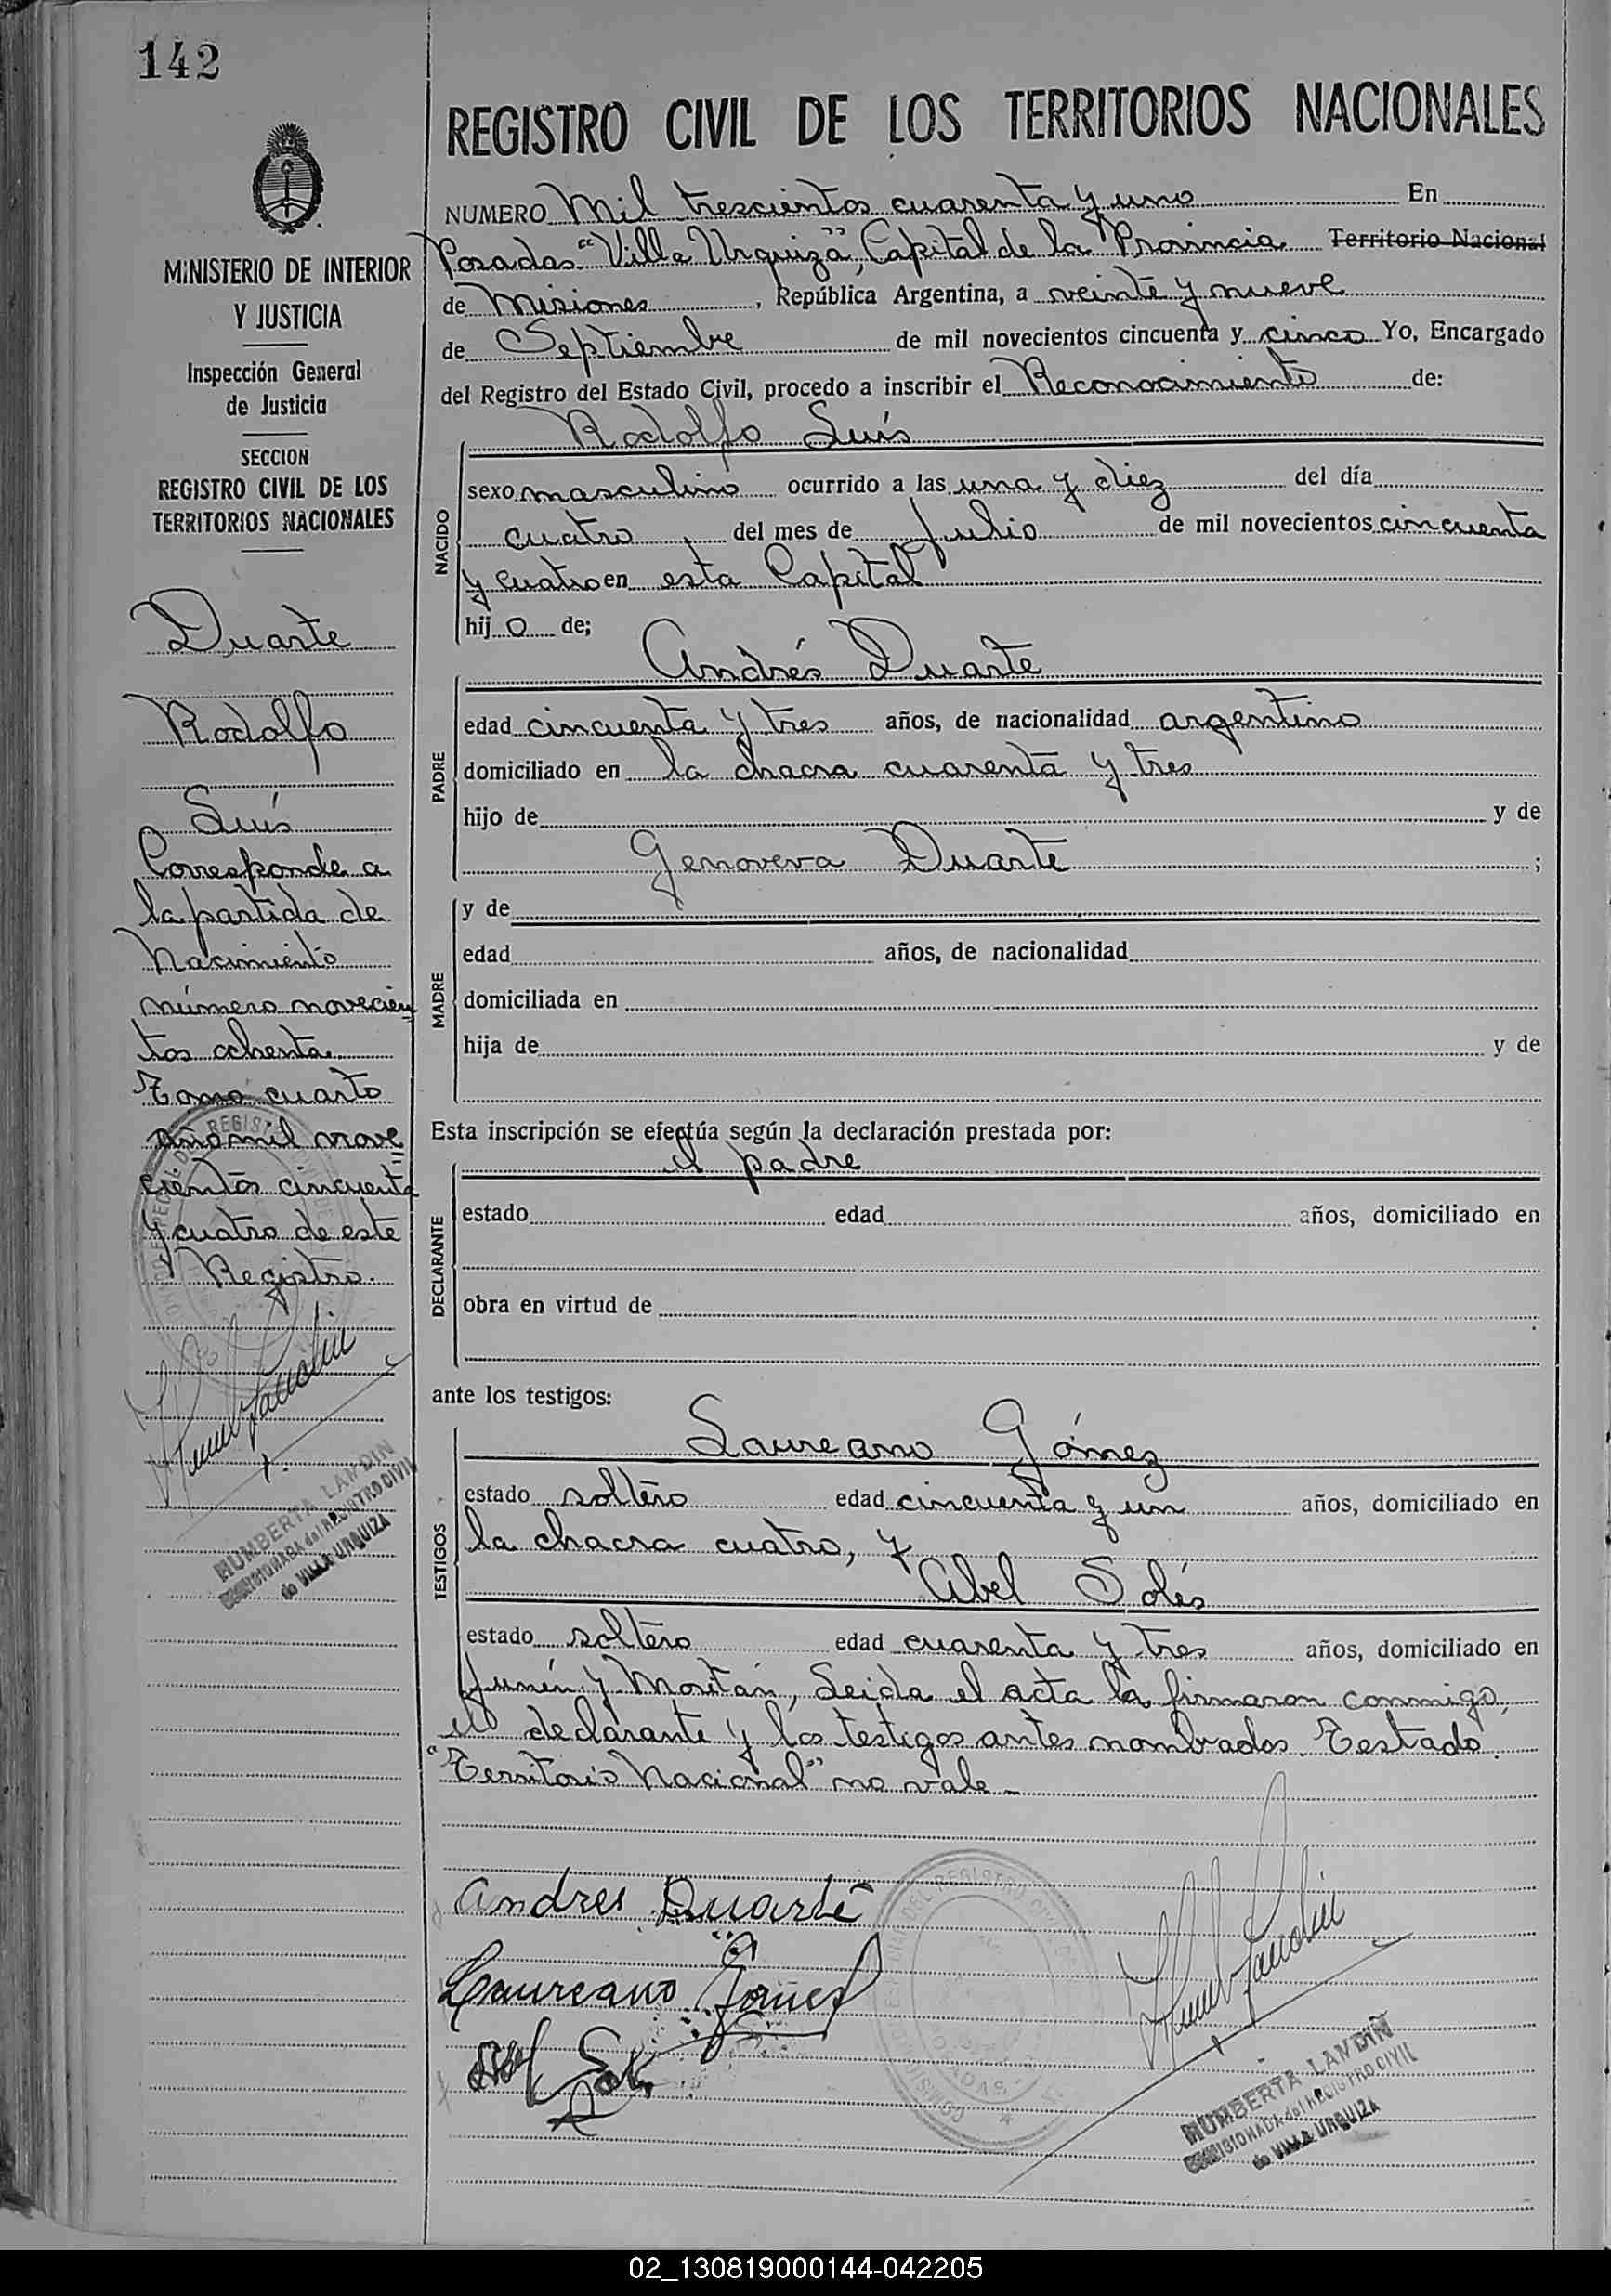 142
MINISTERIO DE INTERIOR
Y JUSTICIA
Inspección General
de Justicia
SECCION
REGISTRO CIVIL DE LOS
TERRITORIOS NACIONALES
Duarte
Rodolfo
Luís
Corresponde a
la partida de
Nacimiento
número novecien
tos ochenta
Tomo cuarto
año mil nove
cientos cincuenta
y cuatro de este
Registro.
HUMBERTA LANDIN
COMISIONADA del REGISTRO CIVIL
de VILLA URQUIZA
REGISTRO CIVIL DE LOS TERRITORIOS NACIONALES
NUMERO Mil trescientos cuarenta y uno En
Posadas "Villa Urquiza", Capital de la Provincia Territorio Nacional
de Misiones, República Argentina, a veinte y nueve
de Septiembre de mil novecientos cincuenta y cinco Yo, Encargado
del Registro del Estado Civil, procedo a inscribir el Reconocimiento de:
Rodolfo Luís
NACIDO
sexo masculino ocurrido a las una y diez del día
cuatro del mes de Julio de mil novecientos cincuenta
y cuatro en esta Capital
hijo de;
Andrés Duarte
PADRE
edad cincuenta y tres años, de nacionalidad argentino
domiciliado en la chacra cuarenta y tres
hijo de y de
Genoveva Duarte ;
MADRE
y de
edad años, de nacionalidad
domiciliada en
hija de y de
Esta inscripción se efectúa según la declaración prestada por:
el padre
DECLARANTE
estado edad años, domiciliado en
obra en virtud de
ante los testigos:
Laureano Gómez
TESTIGOS
estado soltero edad cincuenta y un años, domiciliado en
la chacra cuatro, y
Abel Solés
estado soltero edad cuarenta y tres años, domiciliado en
Junín y Moritán, Leida el acta la firmaron conmigo,
el declarante y los testigos antes nombrados. Testado:
"Territorio Nacional" no vale
Andres Duarte
Laureano Gomez
HUMBERTA LANDIN
COMISIONADA del REGISTRO CIVIL
de VILLA URQUIZA
02_130819000144-042205